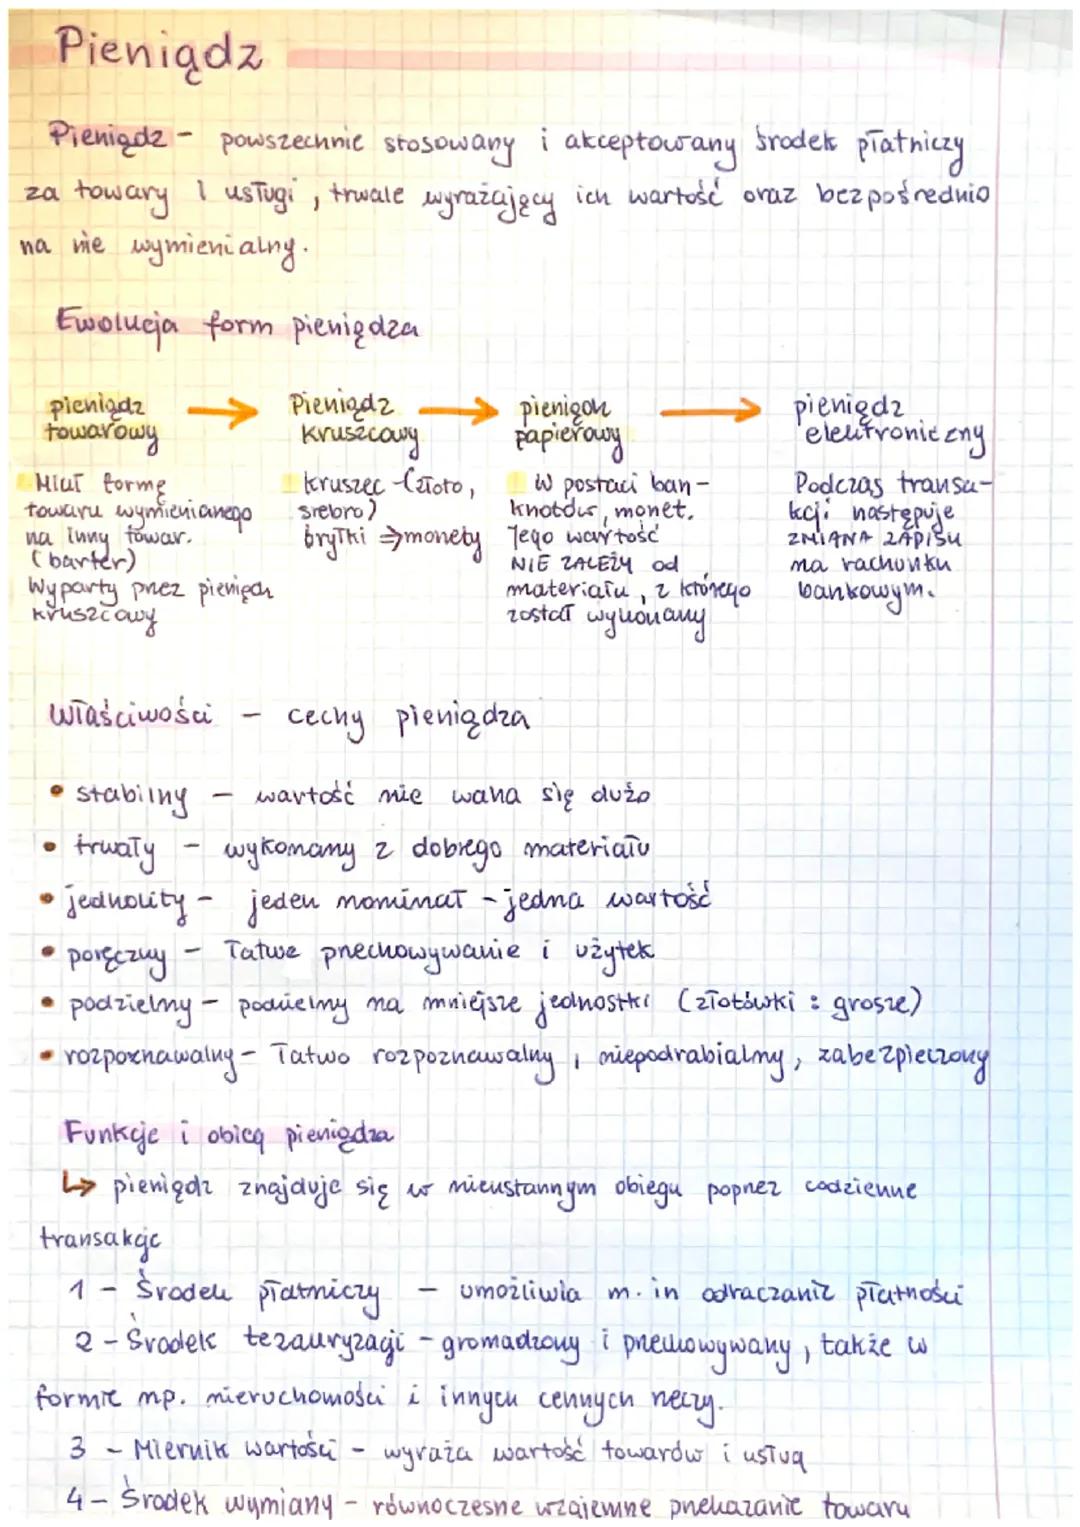 Pieniądz
Pieniądz - powszechnie stosowany i akceptowany środek płatniczy
za towary i usługi, trwale wyrażający ich wartość oraz bezpośrednio
na nie wymienialny.
Ewolucja form pieniądza
pieniądz towarowy → Pieniądz kruszcowy → pieniądz papierowy → pieniądz elektroniczny
Miał formę
towaru wymienianego
na inny towar.
(barter)
Wyparty przez pieniądz
kruszcowy
kruszec (złoto,
srebro)
bryłki ⇒ monety
W postaci ban-
knotów, monet.
Jego wartość
NIE ZALEŻY od
materiału, z którego
został wykonany
Podczas transa-
kcji następuje
ZMIANA ZAPISU
na rachunku
bankowym.
Właściwości - cechy pieniądza
• stabilny - wartość nie waha się dużo
• trwały - wykonany z dobrego materiału
• jednolity - jeden nominał - jedna wartość
• poręczny - łatwe przechowywanie i użytek
• podzielny - podzielny na mniejsze jednostki (złotówki : grosze)
• rozpoznawalny - łatwo rozpoznawalny, niepodrabialny, zabezpieczony
Funkcje i obieg pieniądza
↳ pieniądz znajduje się w nieustannym obiegu poprzez codzienne
transakcje
1 - Środek płatniczy - umożliwia m.in odraczanie płatności
2 - Środek tezauryzacji - gromadzony i przechowywany, także w
formie np. nieruchomości i innych cennych rzeczy.
3 - Miernik wartości - wyraża wartość towarów i usług
4 - Środek wymiany - równoczesne wzajemne przekazanie towaru